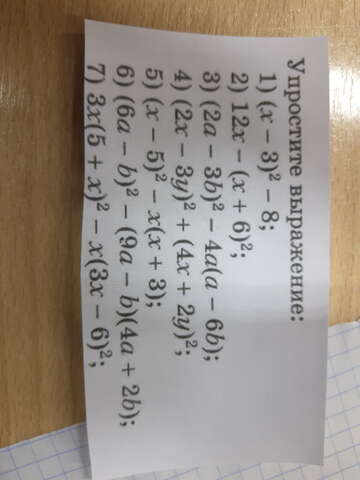 Упростите выражение:
1) (x − 3)² − 8;
2) 12x − (x + 6)²;
3) (2a − 3b)² − 4a(a − 6b);
4) (2x − 3y)² + (4x + 2y)²;
5) (x − 5)² − x(x + 3);
6) (6a − b)² − (9a − b)(4a + 2b);
7) 3x(5 + x)² − x(3x − 6)²;